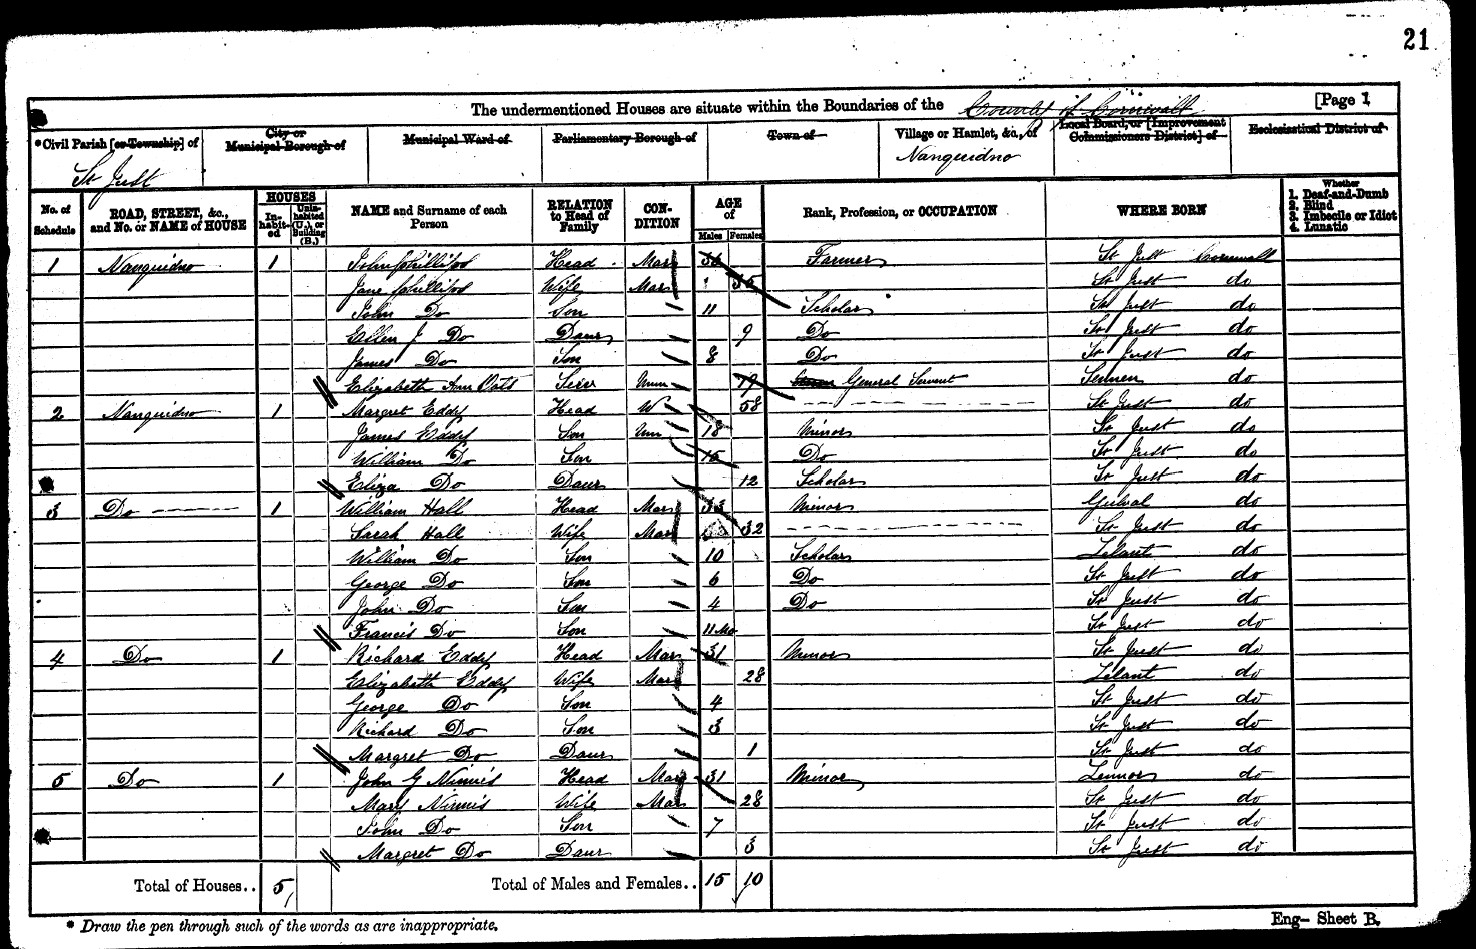 21
The undermentioned Houses are situate within the Boundaries of the County of Cornwall [Page 1
*Civil Parish [or Township] of City or Municipal Borough of Municipal Ward of Parliamentary Borough of Town of Village or Hamlet, &c., of Local Board, or [Improvement Commissioners District] of Ecclesiastical District of
St Just Nanquidno
No. of Schedule ROAD, STREET, &c., and No. or NAME of HOUSE HOUSES In-habit-ed Unin-habited (U.), or Building (B.) NAME and Surname of each Person RELATION to Head of Family CON-DITION AGE of Males Females Rank, Profession, or OCCUPATION WHERE BORN Whether 1. Deaf-and-Dumb 2. Blind 3. Imbecile or Idiot 4. Lunatic
1 Nanquidno 1 John Phillips Head Mar 36 Farmer St Just Cornwall
Jane Phillips Wife Mar 35 St Just do
John Do Son 11 Scholar St Just do
Ellen J Do Daur 9 Do St Just do
James Do Son 8 Do St Just do
Elizabeth Ann Oats Unm 19 General Servant Sennen do
2 Nanquidno 1 Margret Eddy Head W 58 St Just do
James Eddy Son Unm 18 Minor St Just do
William Do Son 15 Do St Just do
Eliza Do Daur 12 Scholar St Just do
3 Do 1 William Hall Head Mar 33 Minor Gulval do
Sarah Hall Wife Mar 32 St Just do
William Do Son 10 Scholar Lelant do
George Do Son 6 Do St Just do
John Do Son 4 Do St Just do
Francis Do Son 11 Mo St Just do
4 Do 1 Richard Eddy Head Mar 31 Minor St Just do
Elizabeth Eddy Wife Mar 28 Lelant do
George Do Son 4 St Just do
Richard Do Son 3 St Just do
Margret Do Daur 1 St Just do
5 Do 1 John G Ninnis Head Mar 31 Minor Zennor do
Mary Ninnis Wife Mar 28 St Just do
John Do Son 7 St Just do
Margret Do Daur 3 St Just do
Total of Houses.. 5 Total of Males and Females.. 15 10
* Draw the pen through such of the words as are inappropriate. Eng- Sheet B.